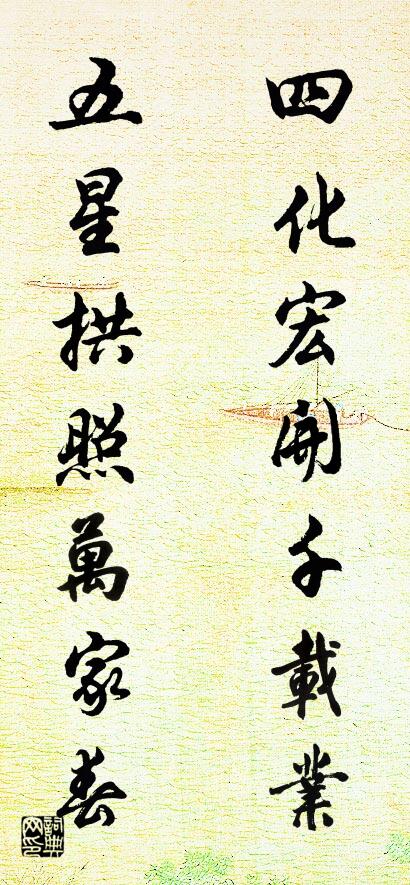 四化宏開千載業
五星拱照萬家春
詞典網印